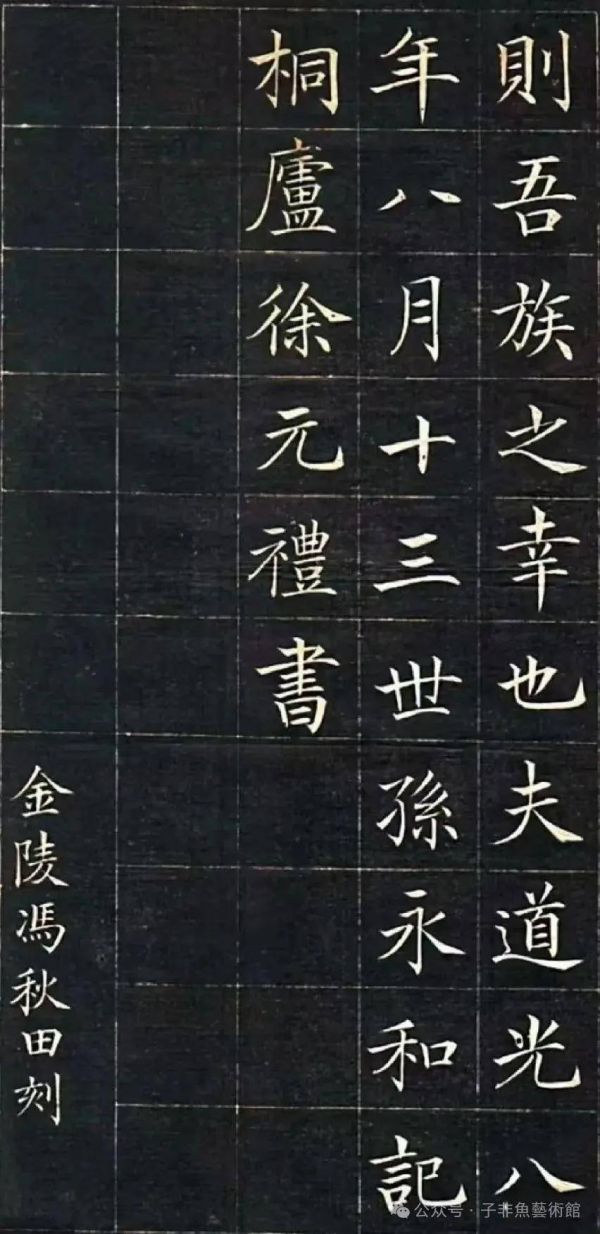 則吾族之幸也夫道光八
年八月十三世孫永和記
桐廬徐元禮書
金陵馮秋田刻
公众号·子非魚藝術館